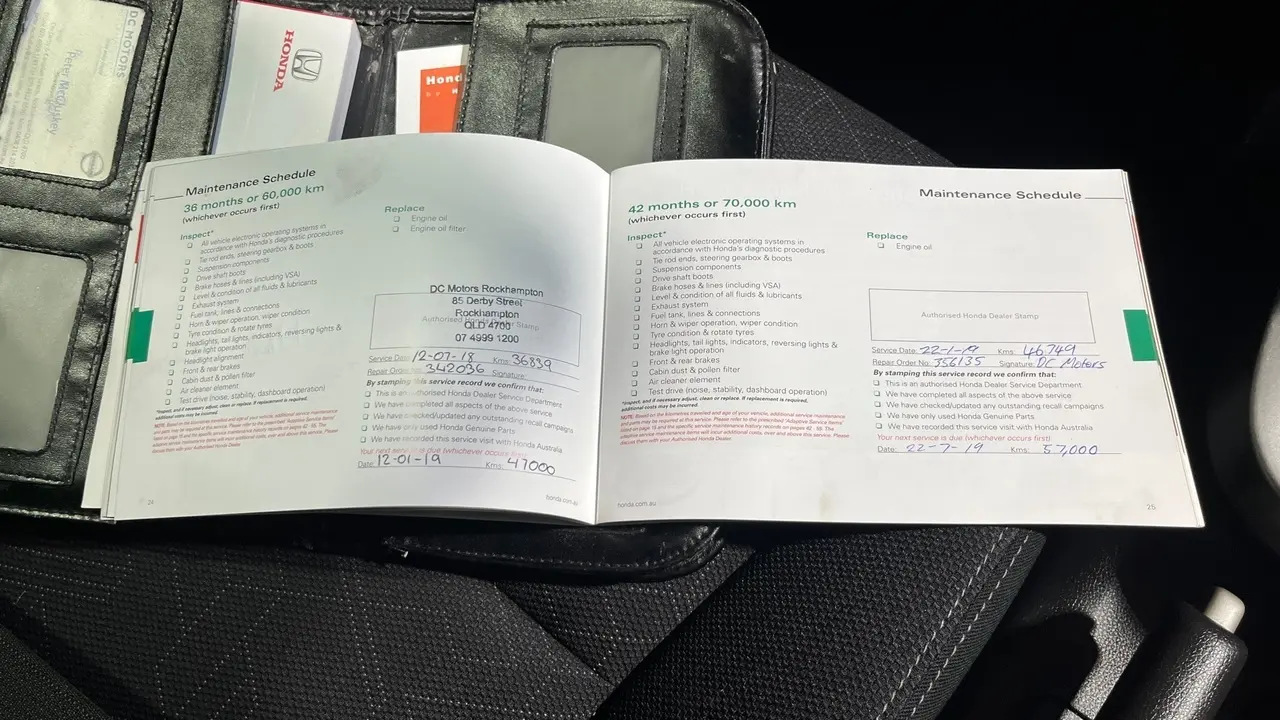 DC MOTORS
Peter McCluskey
HONDA
Hond
Maintenance Schedule
36 months or 60,000 km
(whichever occurs first)
Inspect*
All vehicle electronic operating systems in
accordance with Honda's diagnostic procedures
Tie rod ends, steering gearbox & boots
Suspension components
Drive shaft boots
Brake hoses & lines (including VSA)
Level & condition of all fluids & lubricants
Exhaust system
Fuel tank, lines & connections
Horn & wiper operation, wiper condition
Tyre condition & rotate tyres
Headlights, tail lights, indicators, reversing lights &
brake light operation
Headlight alignment
Front & rear brakes
Cabin dust & pollen filter
Air cleaner element
Test drive (noise, stability, dashboard operation)
*Inspect, and if necessary adjust, clean or replace. If replacement is required,
additional costs may be incurred.
NOTE: Based on the kilometres travelled and age of your vehicle, additional service maintenance
and parts may be required at this service. Please refer to the prescribed 'Adaptive Service Items'
Replace
Engine oil
Engine oil filter
DC Motors Rockhampton
85 Derby Street
Rockhampton
Authorised Honda Dealer Stamp
QLD 4700
07 4999 1200
Service Date: 12-07-18 Kms: 36839
Repair Order No: 342036 Signature:
By stamping this service record we confirm that:
This is an authorised Honda Dealer Service Department
We have completed all aspects of the above service
We have checked/updated any outstanding recall campaigns
We have only used Honda Genuine Parts
We have recorded this service visit with Honda Australia
Your next service is due (whichever occurs first)
Date: 12-01-19 Kms: 47000
24
honda.com.au
Maintenance Schedule
42 months or 70,000 km
(whichever occurs first)
Inspect*
All vehicle electronic operating systems in
accordance with Honda's diagnostic procedures
Tie rod ends, steering gearbox & boots
Suspension components
Drive shaft boots
Brake hoses & lines (including VSA)
Level & condition of all fluids & lubricants
Exhaust system
Fuel tank, lines & connections
Horn & wiper operation, wiper condition
Tyre condition & rotate tyres
Headlights, tail lights, indicators, reversing lights &
brake light operation
Front & rear brakes
Cabin dust & pollen filter
Air cleaner element
Test drive (noise, stability, dashboard operation)
*Inspect, and if necessary adjust, clean or replace. If replacement is required,
additional costs may be incurred.
NOTE: Based on the kilometres travelled and age of your vehicle, additional service maintenance
and parts may be required at this service. Please refer to the prescribed 'Adaptive Service Items'
Replace
Engine oil
Authorised Honda Dealer Stamp
Service Date: 22-1-19 Kms: 46749
Repair Order No: 356135 Signature: DC Motors
By stamping this service record we confirm that:
This is an authorised Honda Dealer Service Department
We have completed all aspects of the above service
We have checked/updated any outstanding recall campaigns
We have only used Honda Genuine Parts
We have recorded this service visit with Honda Australia
Your next service is due (whichever occurs first)
Date: 22-7-19 Kms: 57,000
honda.com.au
25